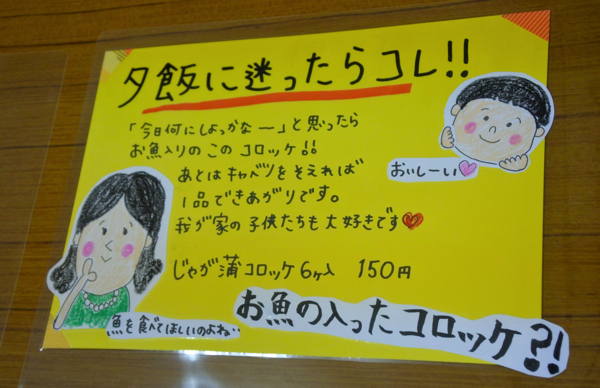 夕飯に迷ったらコレ!!
「今日何にしよっかなー」と思ったら
お魚入りのこのコロッケ!!
あとはキャベツをそえれば
1品できあがりです。
我が家の子供たちも大好きです♥
おいしーい♥
じゃが蒲コロッケ6ヶ入 150円
魚を食べてほしいのよね…
お魚の入ったコロッケ?!